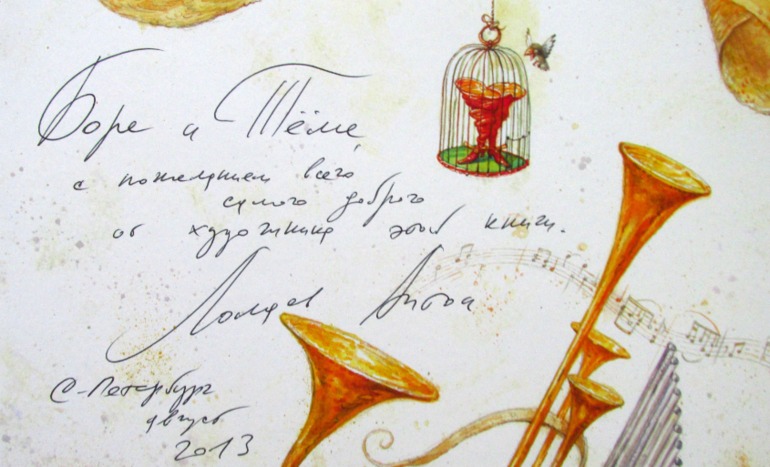 Боре и Тёме,
с пожеланием всего
самого доброго
от художника этой книги.
Ломаев Антон
С-Петербург
август
2013